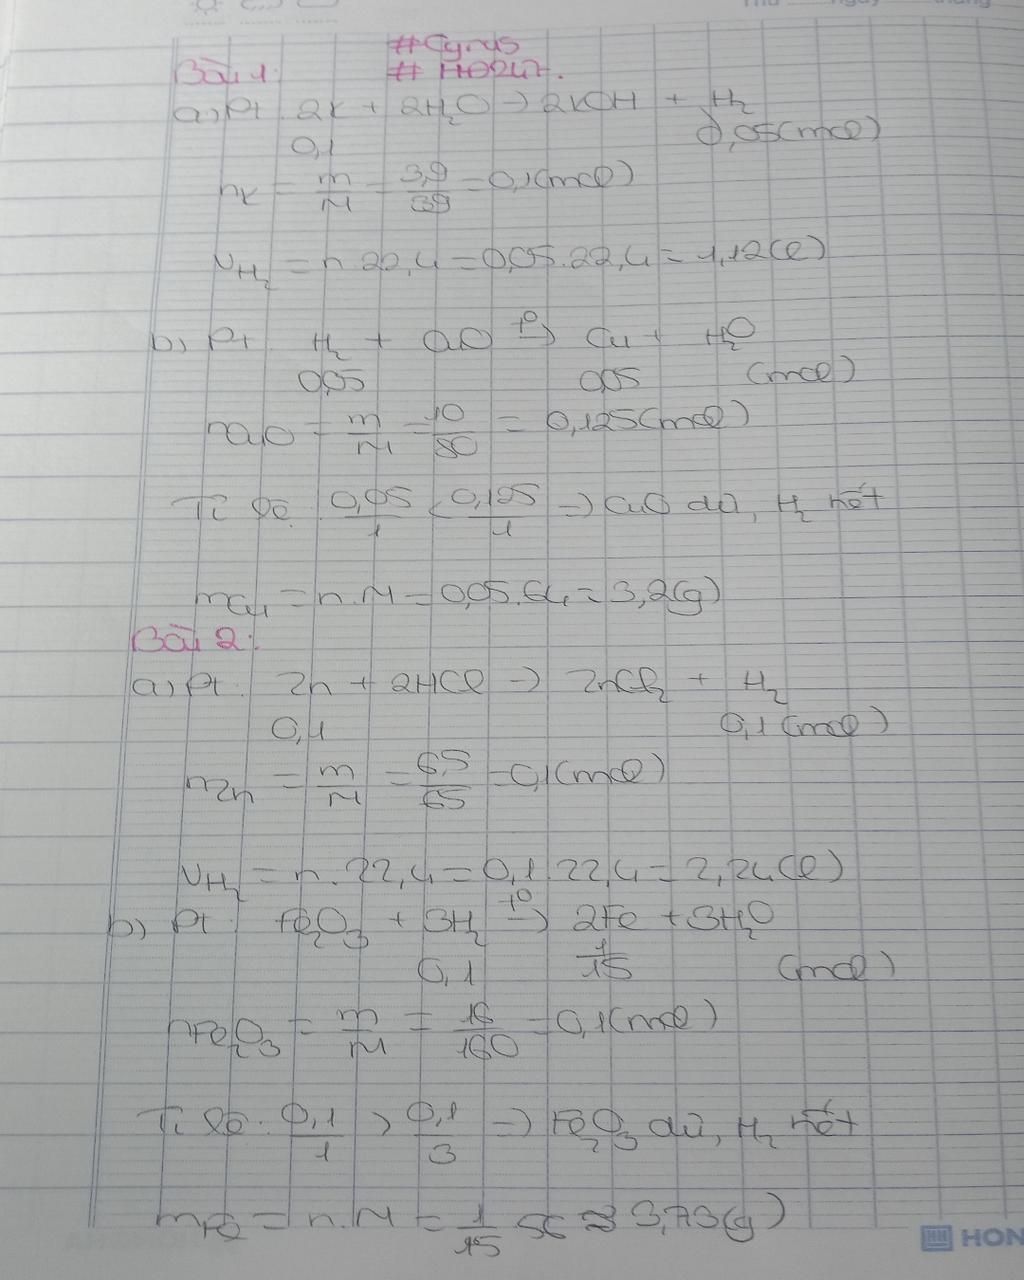 #Cyrus
Bài 1: # HĐ247.
a, Pt 2K + 2H₂O → 2KOH + H₂
0,1 0,05(mol)
nK = m/M = 3,9/39 = 0,1(mol)
VH₂ = n.22,4 = 0,05.22,4 = 1,12(l)
b, Pt H₂ + CuO t°→ Cu + H₂O
0,05 0,05 (mol)
nCuO = m/M = 10/80 = 0,125(mol)
Tỉ lệ: 0,05/1 < 0,125/1 => CuO dư, H₂ hết
mCu = n.M = 0,05.64 = 3,2(g)
Bài 2:
a, Pt: Zn + 2HCl → ZnCl₂ + H₂
0,1 0,1(mol)
nZn = m/M = 6,5/65 = 0,1(mol)
VH₂ = n.22,4 = 0,1.22,4 = 2,24(l)
b) Pt: Fe₂O₃ + 3H₂ t°→ 2Fe + 3H₂O
0,1 1/15 (mol)
nFe₂O₃ = m/M = 16/160 = 0,1(mol)
Tỉ lệ: 0,1/1 > 0,1/3 => Fe₂O₃ dư, H₂ hết
mFe = n.M = 1/15 56 ≈ 3,73(g)
HON